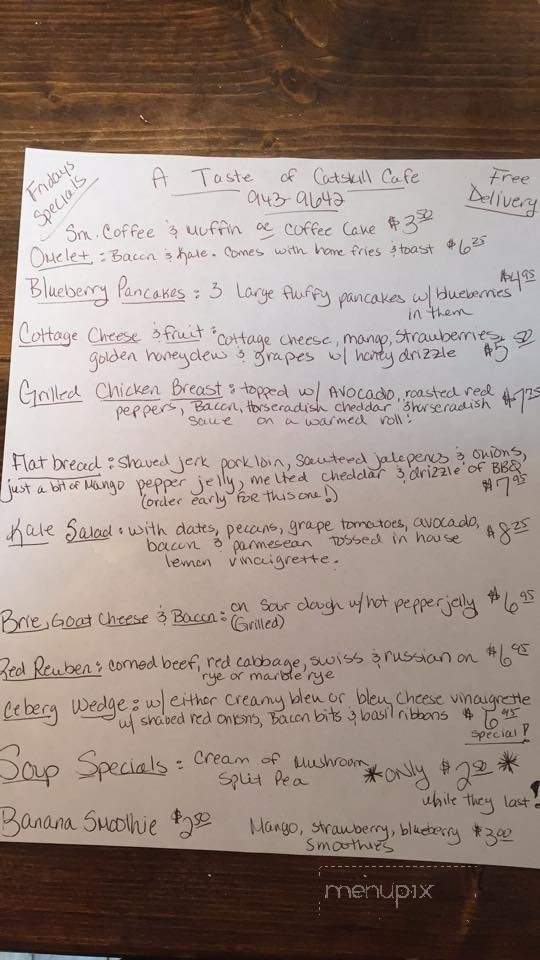 Fridays
Specials
A Taste of Catskill Cafe
943-9642
Free
Delivery
Sm. Coffee & Muffin or Coffee Cake $3.50
Omelet : Bacon & Kale. Comes with home fries & toast $6.25
Blueberry Pancakes : 3 Large fluffy pancakes w/ blueberries $4.95
in them
Cottage Cheese & fruit : cottage cheese, mango, strawberries,
golden honeydew & grapes w/ honey drizzle $5.50
Grilled Chicken Breast : topped w/ Avocado, roasted red
peppers, Bacon, horseradish cheddar & horseradish $7.25
sauce on a warmed roll.
Flat bread : shaved jerk pork loin, sauteed jalepenos & onions,
just a bit of Mango pepper jelly, melted cheddar & drizzle of BBQ
(order early for this one!) $7.95
Kale Salad : with dates, pecans, grape tomatoes, avocado, $8.25
bacon & parmesean tossed in house
lemon vinaigrette.
Brie, Goat Cheese & Bacon : on sour dough w/ hot pepper jelly $6.95
(Grilled)
Red Reuben : corned beef, red cabbage, swiss & russian on $6.95
rye or marble rye
Iceberg Wedge : w/ either creamy bleu or bleu cheese vinaigrette
w/ shaved red onions, Bacon bits & basil ribbons $6.95
special!
Soup Specials : Cream of Mushroom *ONLY $2.50 *
Split Pea
while they last!
Banana Smoothie $2.50 Mango, strawberry, blueberry $3.00
smoothies
menupix